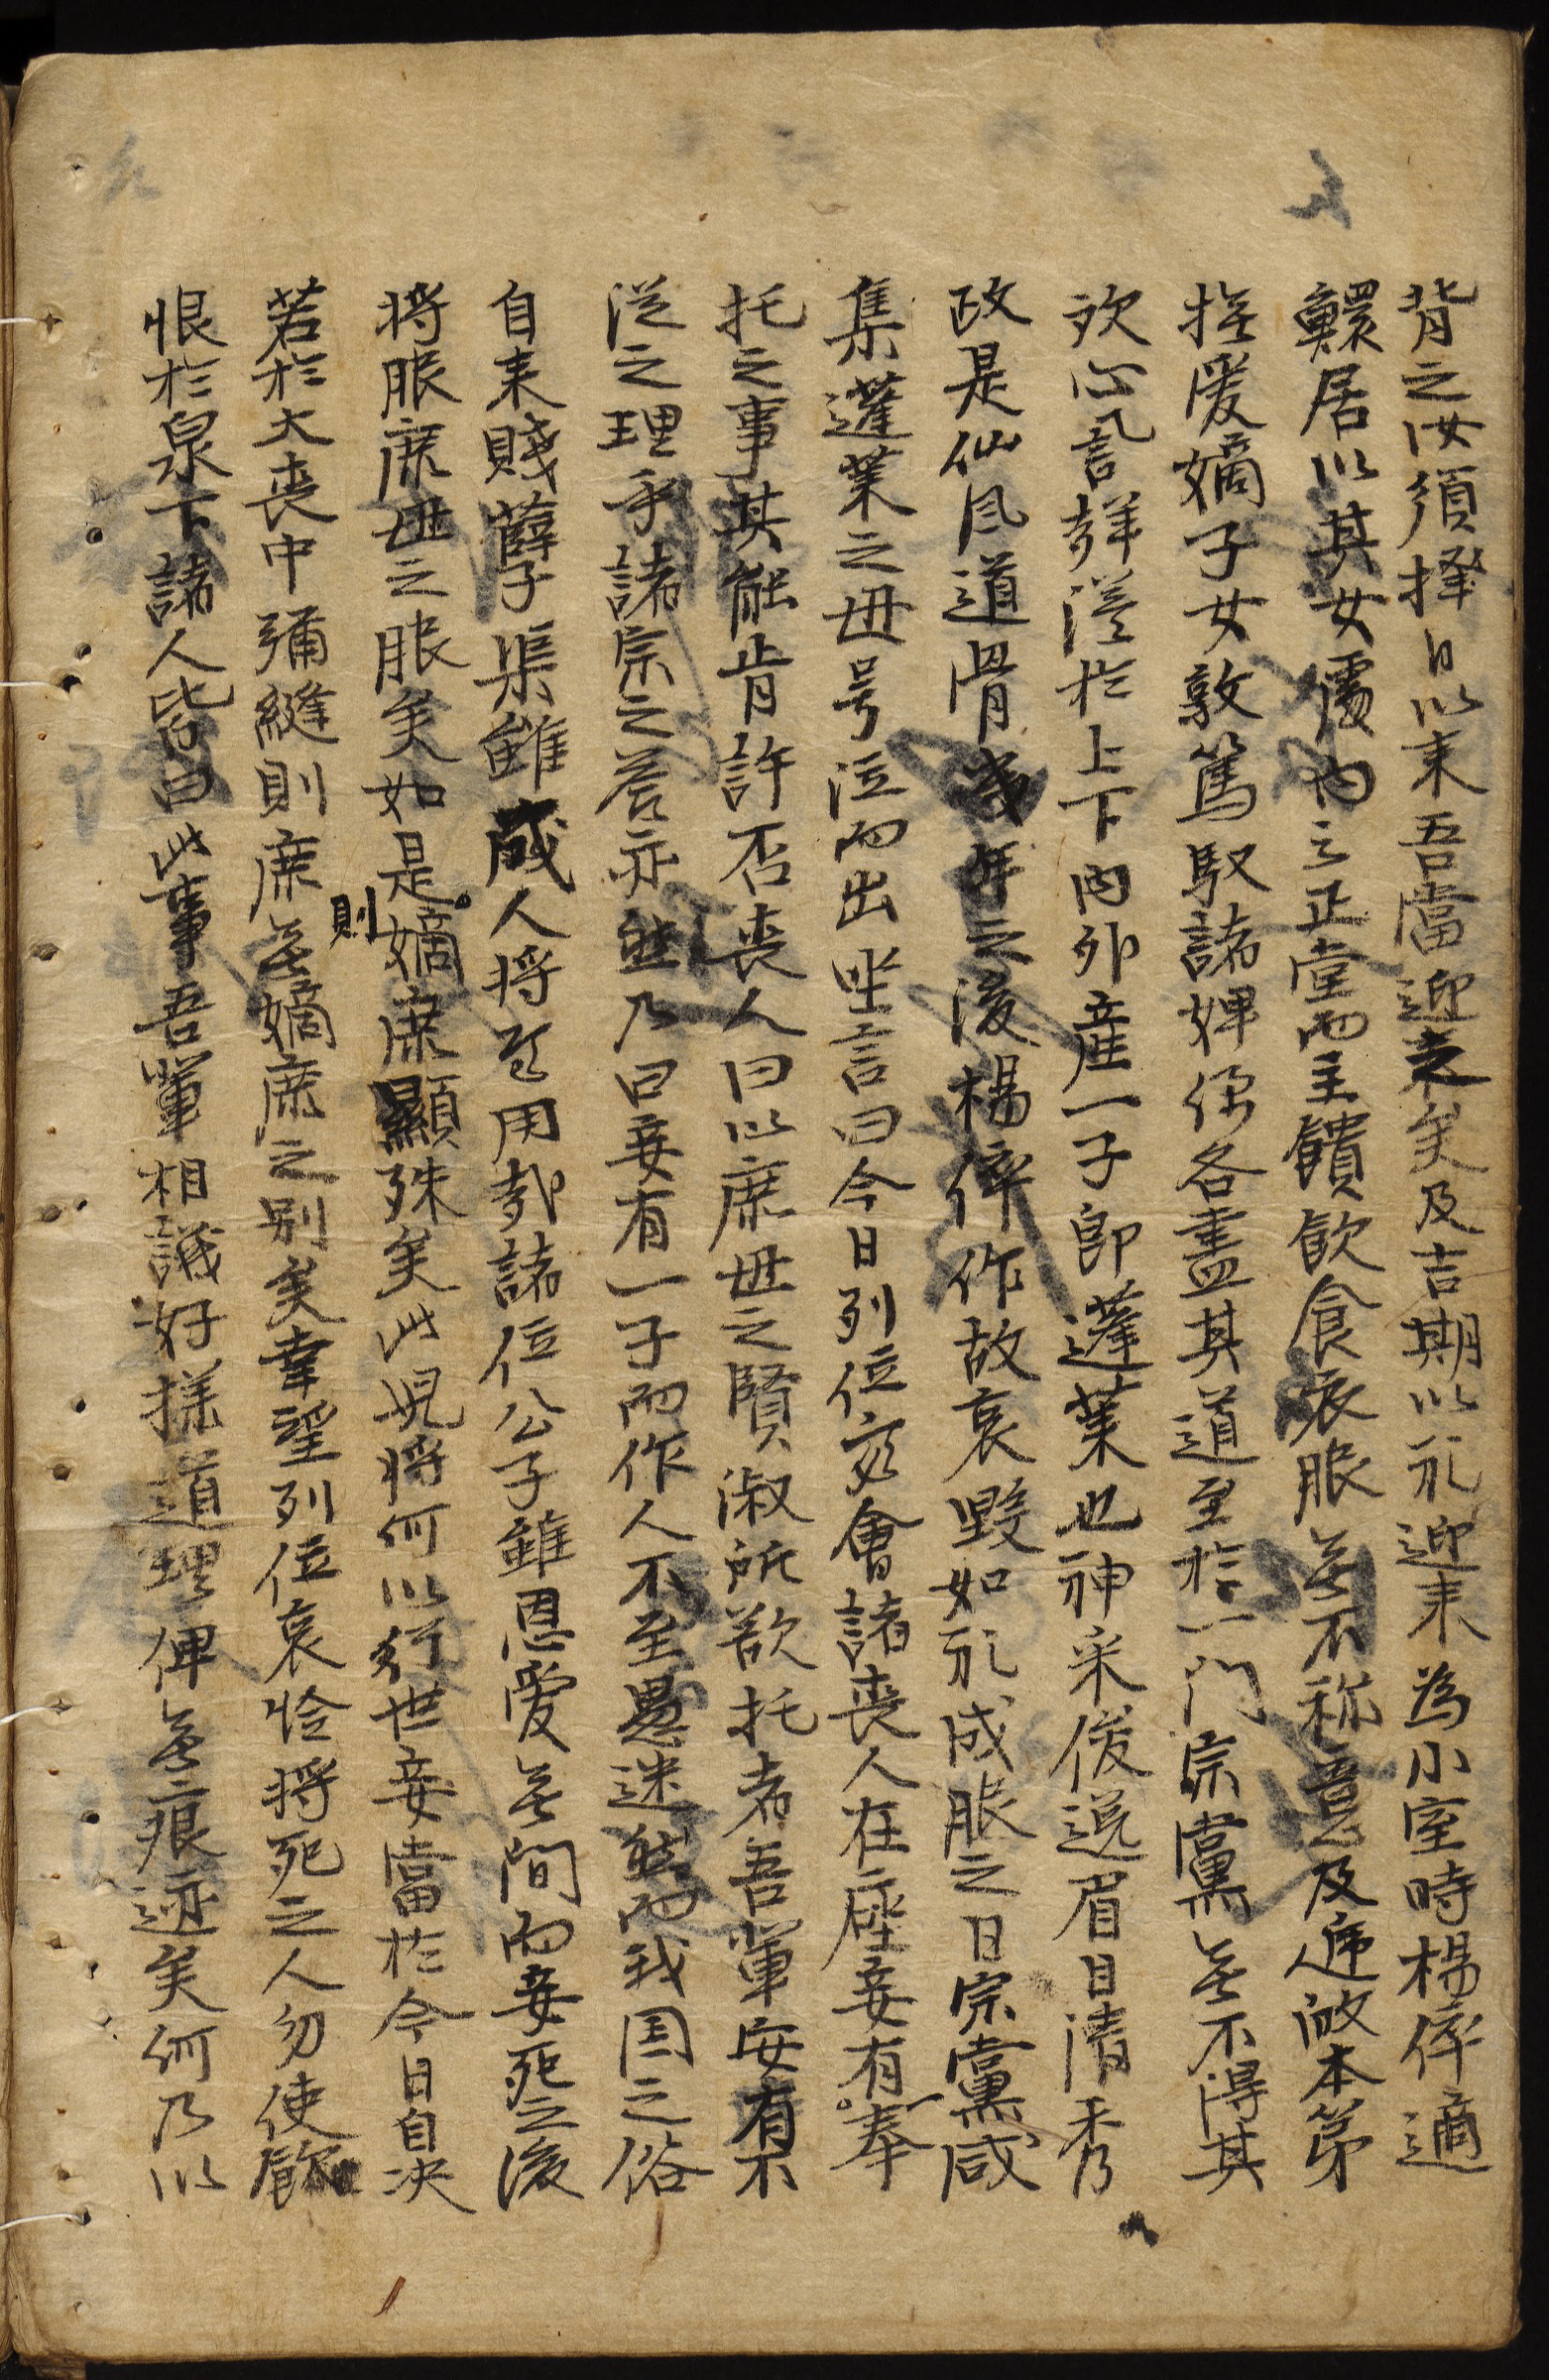 背之汝須擇日以来吾當迎来矣及吉期以礼迎来為小室時楊倅適
鰥居以其女處內之正堂而主饋飲食衣服無不称意及遞啟本第
撫愛嫡子女敦篤馭諸婢僕各盡其道至於一門宗黨無不得其
欢心言辭溢於上下內外産一子郎蓬莱也神采俊逸眉目清秀
政是仙风道骨幾年之後楊倅作故哀毀如礼成服之日宗黨咸
集蓬莱之母号泣而出坐言曰今日列位齊會諸喪人在座妾有一奉
托之事其能肯許否喪人曰以庶母之賢淑所欲托者吾輩安有不
從之理乎諸宗之荅亦然乃曰妾有一子而作人不至愚迷然而我国之俗
自来賤孽子渠雖成人将焉用哉諸位公子雖恩愛無間而妾死之後
将服庶母之服矣如是則嫡庶顯殊矣此児将何以行世妾當於今日自决
若於大喪中彌縫則庶無嫡庶之別矣幸望列位哀怜将死之人勿使飲
恨於泉下諸人皆曰此事吾輩相議好様道理俾無痕迹矣何乃以